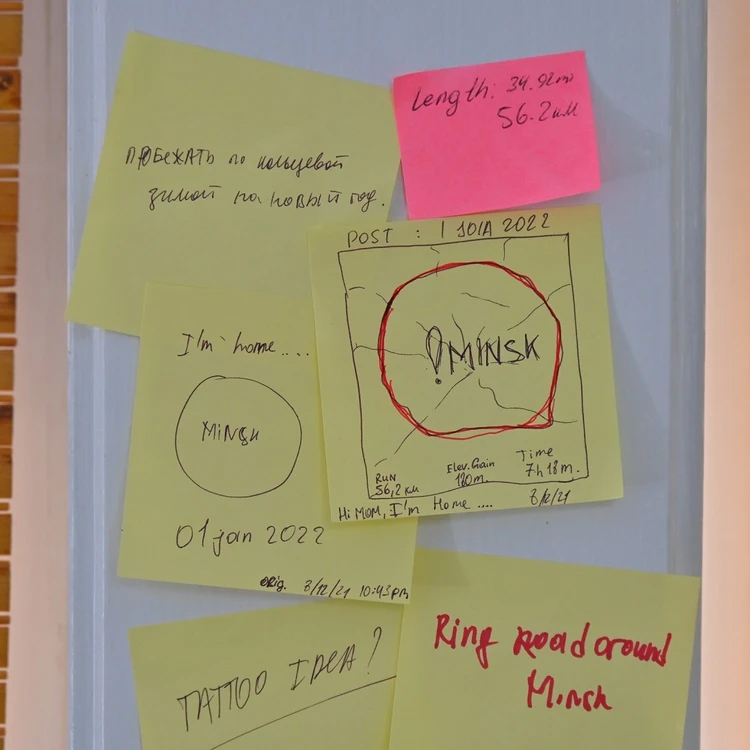 ПРОБЕЖАТЬ по кольцевой
зимой на новый год.
Length: 34.92mi
56.2км
POST : 1 JOIA 2022
MINSK
RUN
56,2 км
Elev. Gain
120m.
Time
7h 18m.
Hi MOM, I'm Home ....
8/12/21
I'm home....
MiNSK
01 jan 2022
orig. 8/12/21 10:43PM
TATTOO IDEA?
Ring road around
Minsk